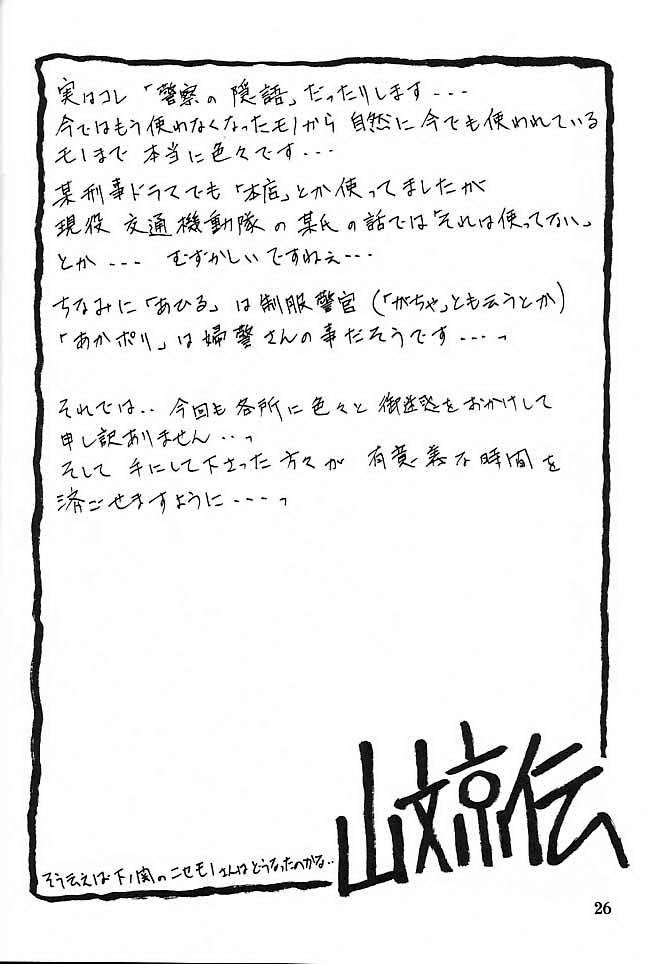 実はコレ「警察の隠語」だったりします---
今ではもう使わなくなったモノから 自然に今でも使われている
モノまで 本当に色々です---
某刑事ドラマでも「本店」とか使ってましたが
現役 交通機動隊の某氏の話では「それは使ってない」
とか--- むずかしいですねぇ---
ちなみに「あひる」は制服警官(「がちゃ」とも云うとか)
「あかポリ」は婦警さんの事だそうです---っ
それでは.. 今回も各所に色々と御迷惑をおかけして
申し訳ありません...っ
そして 手にして下さった方々が 有意義な時間を
済ごせますように---っ
山文京伝
そう云えば下ノ関のニセモノさんはどうなったのかな..
26